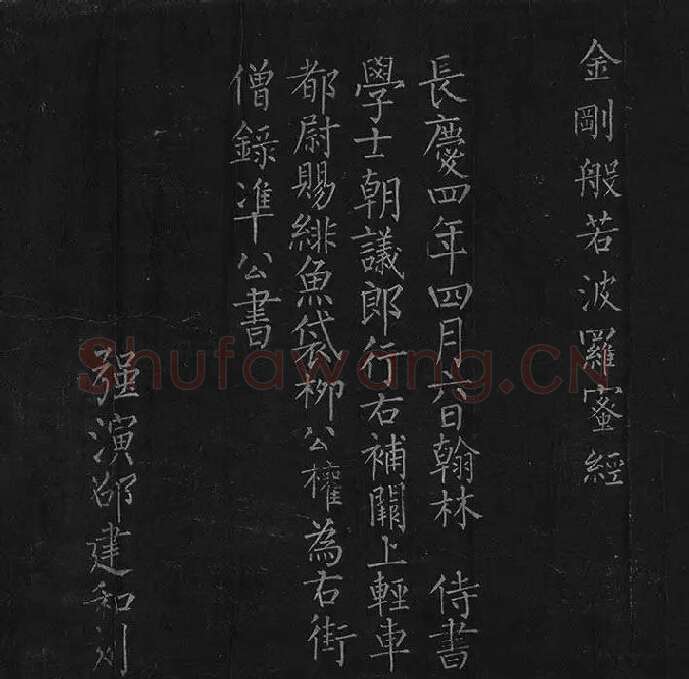 金剛般若波羅蜜經
長慶四年四月六日翰林 侍書
學士朝議郎行右補闕上輕車
都尉賜緋魚袋柳公權為右街
僧錄準公書
强演邵建和刻
Shufawang.CN